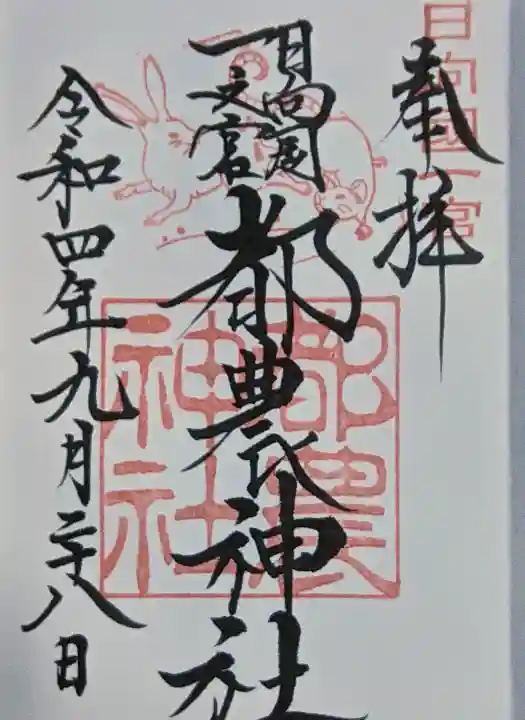 日向國一宮
奉拝
日向国
一之宮
都農神社
都農
神社
令和四年九月二十八日